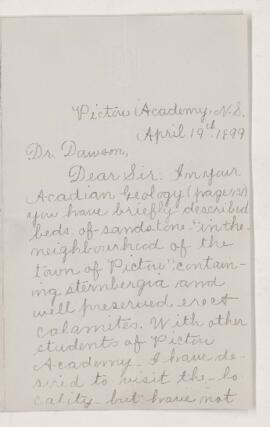 Pictou Academy, N.S.
April 19th. 1899
Dr. Dawson,
Dear Sir: In your
Acadian Geology (page
you have briefly described
beds of sandstone "in the
neighbourhood of the
town of Pictou" contain-
ing sternbergia and
well preserved erect
calamites. With other
students of Pictou
Academy I have de-
sired to visit the lo-
cality but have not